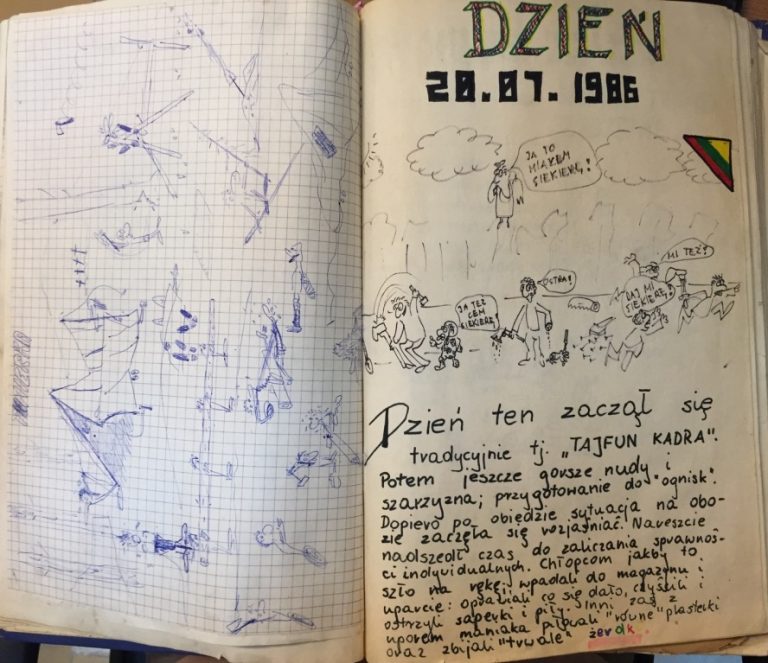 DZIEŃ
20.07.1986
JA TO MIAŁEM SIEKIERĘ!
MI TEŻ?
OSTRA!
DAJ MI SIEKIERĘ!
JA TEŻ CEM SIEKIERĘ
Dzień ten zaczął się
tradycyjnie tj. „TAJFUN KADRA".
Potem jeszcze gorsze nudy i
szarzyzna; przygotowanie do "ognisk".
Dopiero po obiedzie sytuacja na obo-
zie zaczęła się rozjaśniać. Nareszcie
nadszedł czas do zaliczania sprawnoś-
ci indywidualnych. Chłopcom jakby to
szło na rękę; wpadali do magazynu i
uparcie: opalali co się dało, czyścili i
ostrzyli saperki i piły. Inni zaś z
uporem maniaka piłowali "równe" plasterki
oraz zbijali "trwałe" żerdk